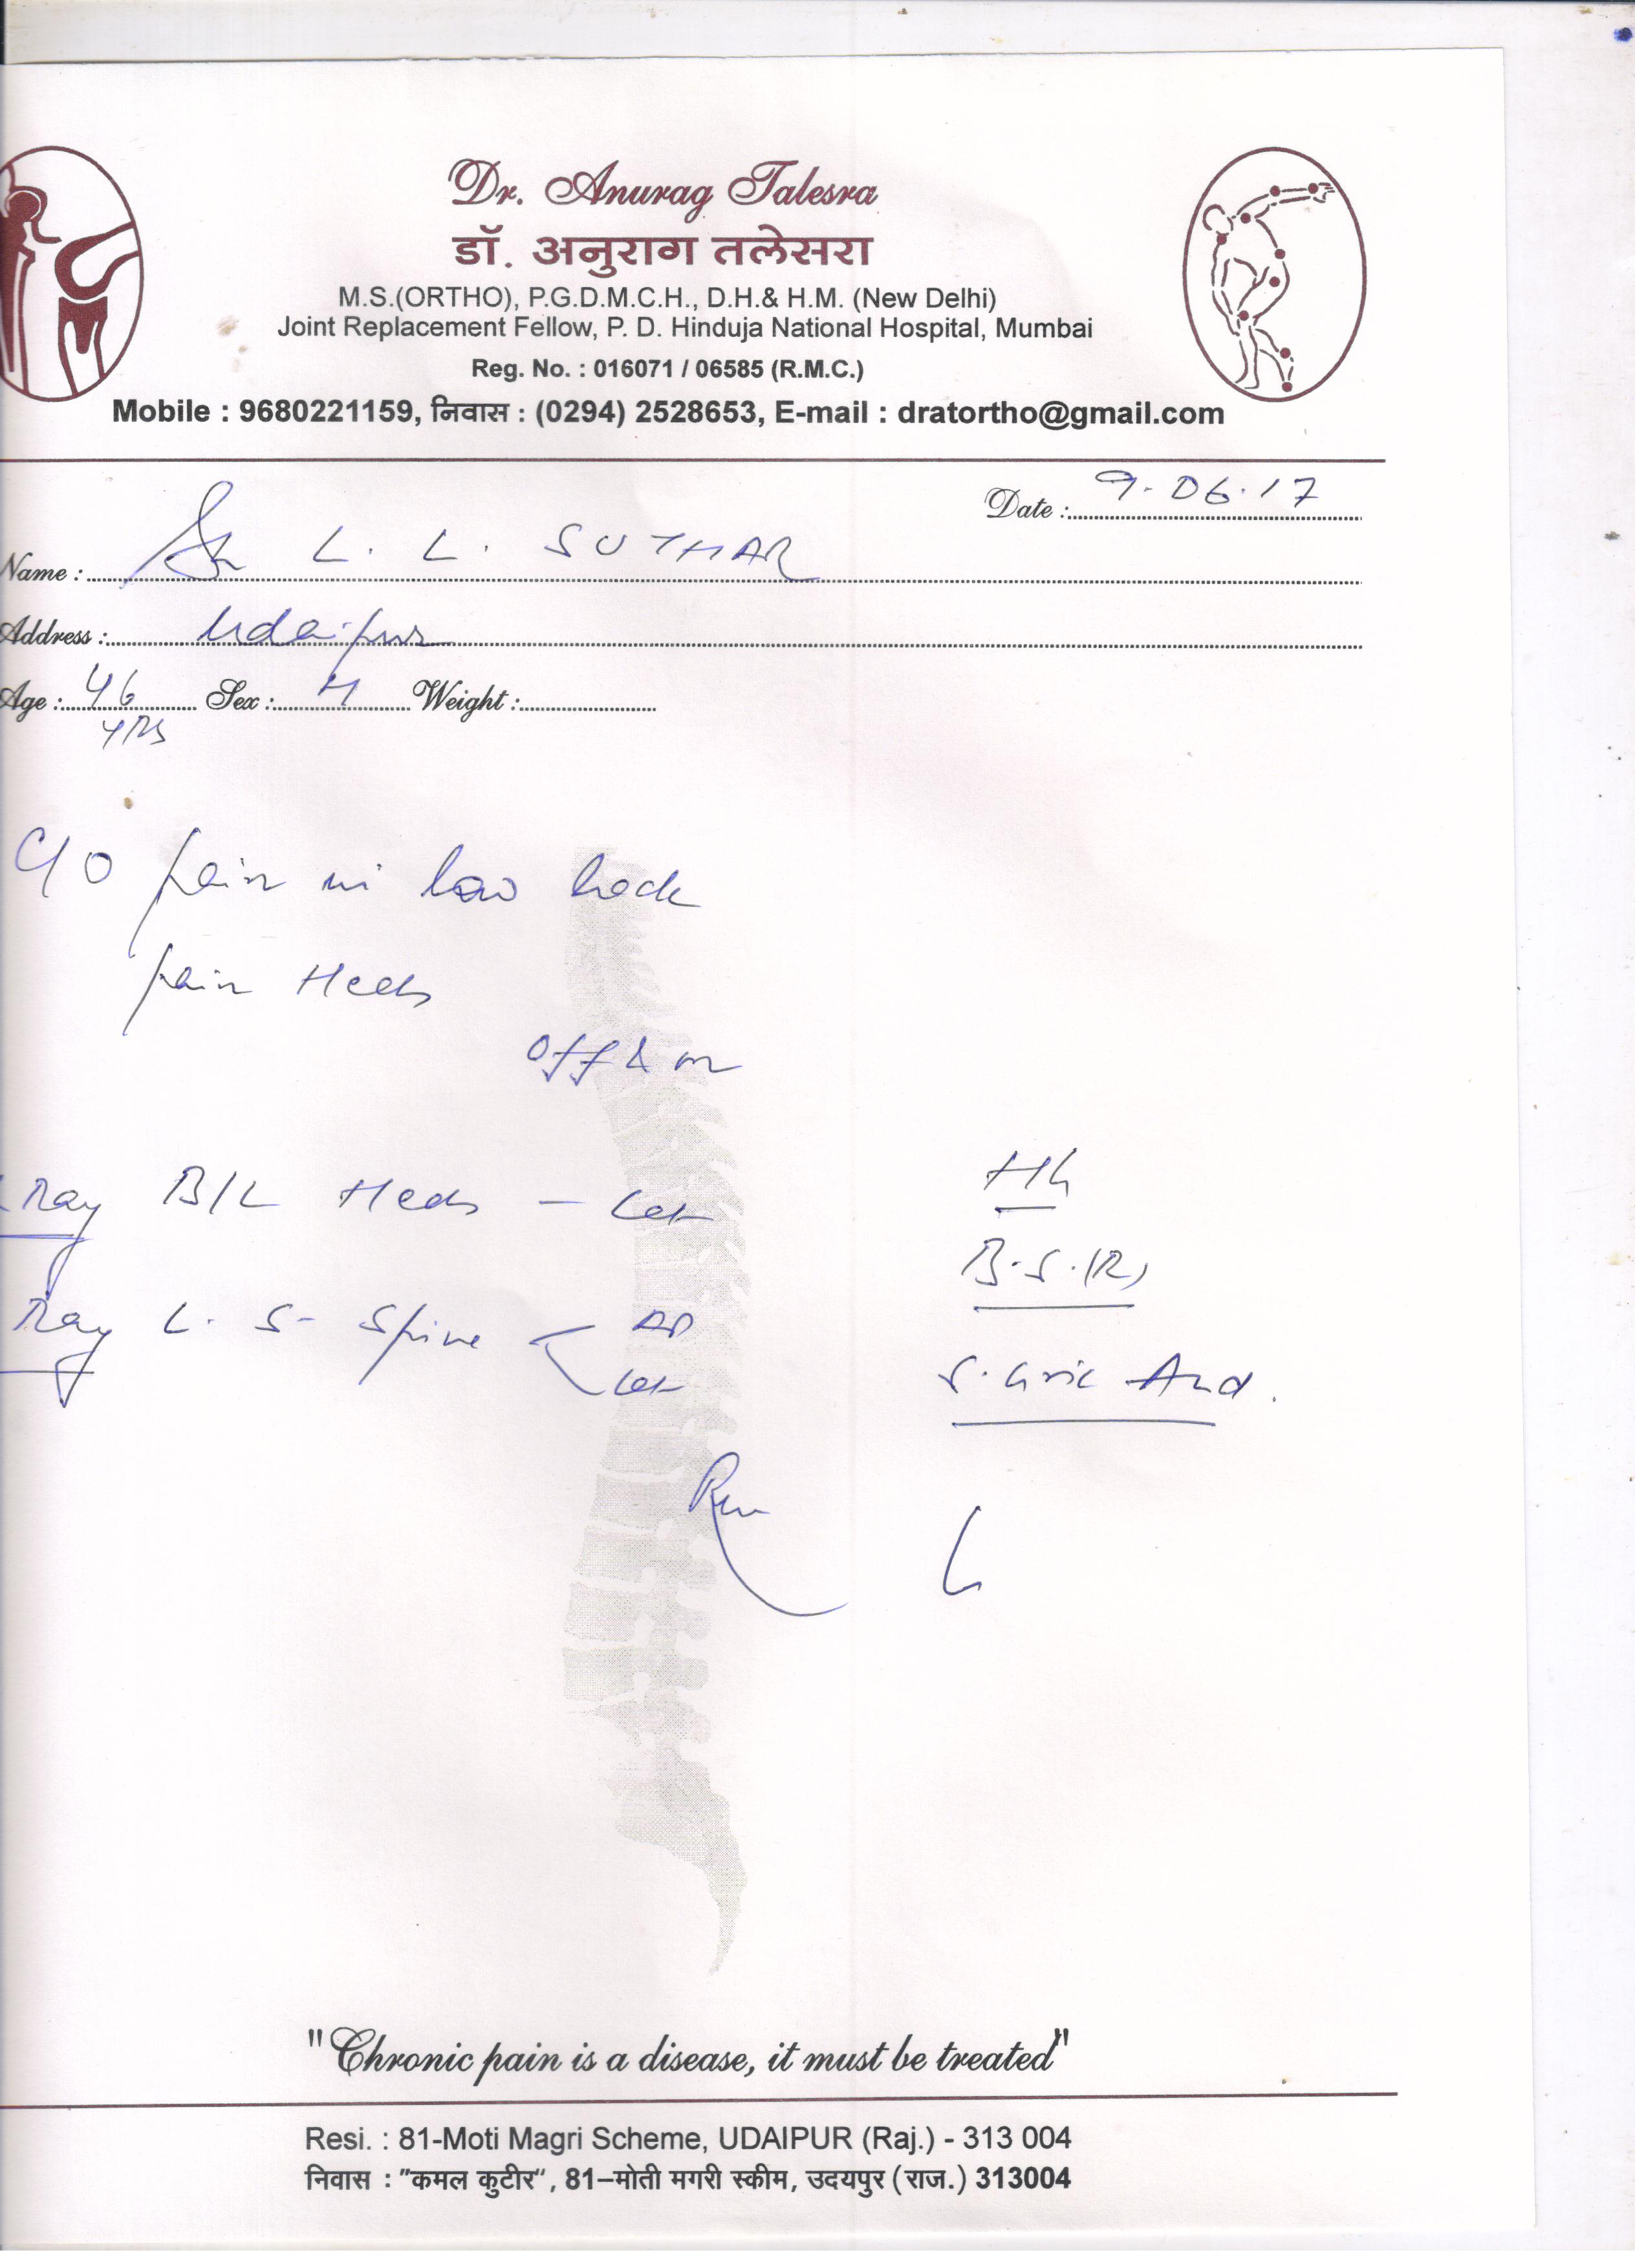 Dr. Anurag Talesra
डॉ. अनुराग तलेसरा
M.S.(ORTHO), P.G.D.M.C.H., D.H.& H.M. (New Delhi)
Joint Replacement Fellow, P. D. Hinduja National Hospital, Mumbai
Reg. No. : 016071 / 06585 (R.M.C.)
Mobile : 9680221159, निवास : (0294) 2528653, E-mail : dratortho@gmail.com
Date : 9.06.17
Name : L. L. SUTHAR
Address : Udaipur
Age : 46 YRS Sex : M Weight :
C/O pain in low back
pain Heels
off & on
Ray B/L Heels - Lat
Hb
B.S.(R)
Ray L.S- Spine < AP
Lat
S. Uric Acid.
"Chronic pain is a disease, it must be treated"
Resi. : 81-Moti Magri Scheme, UDAIPUR (Raj.) - 313 004
निवास : "कमल कुटीर", 81–मोती मगरी स्कीम, उदयपुर (राज.) 313004